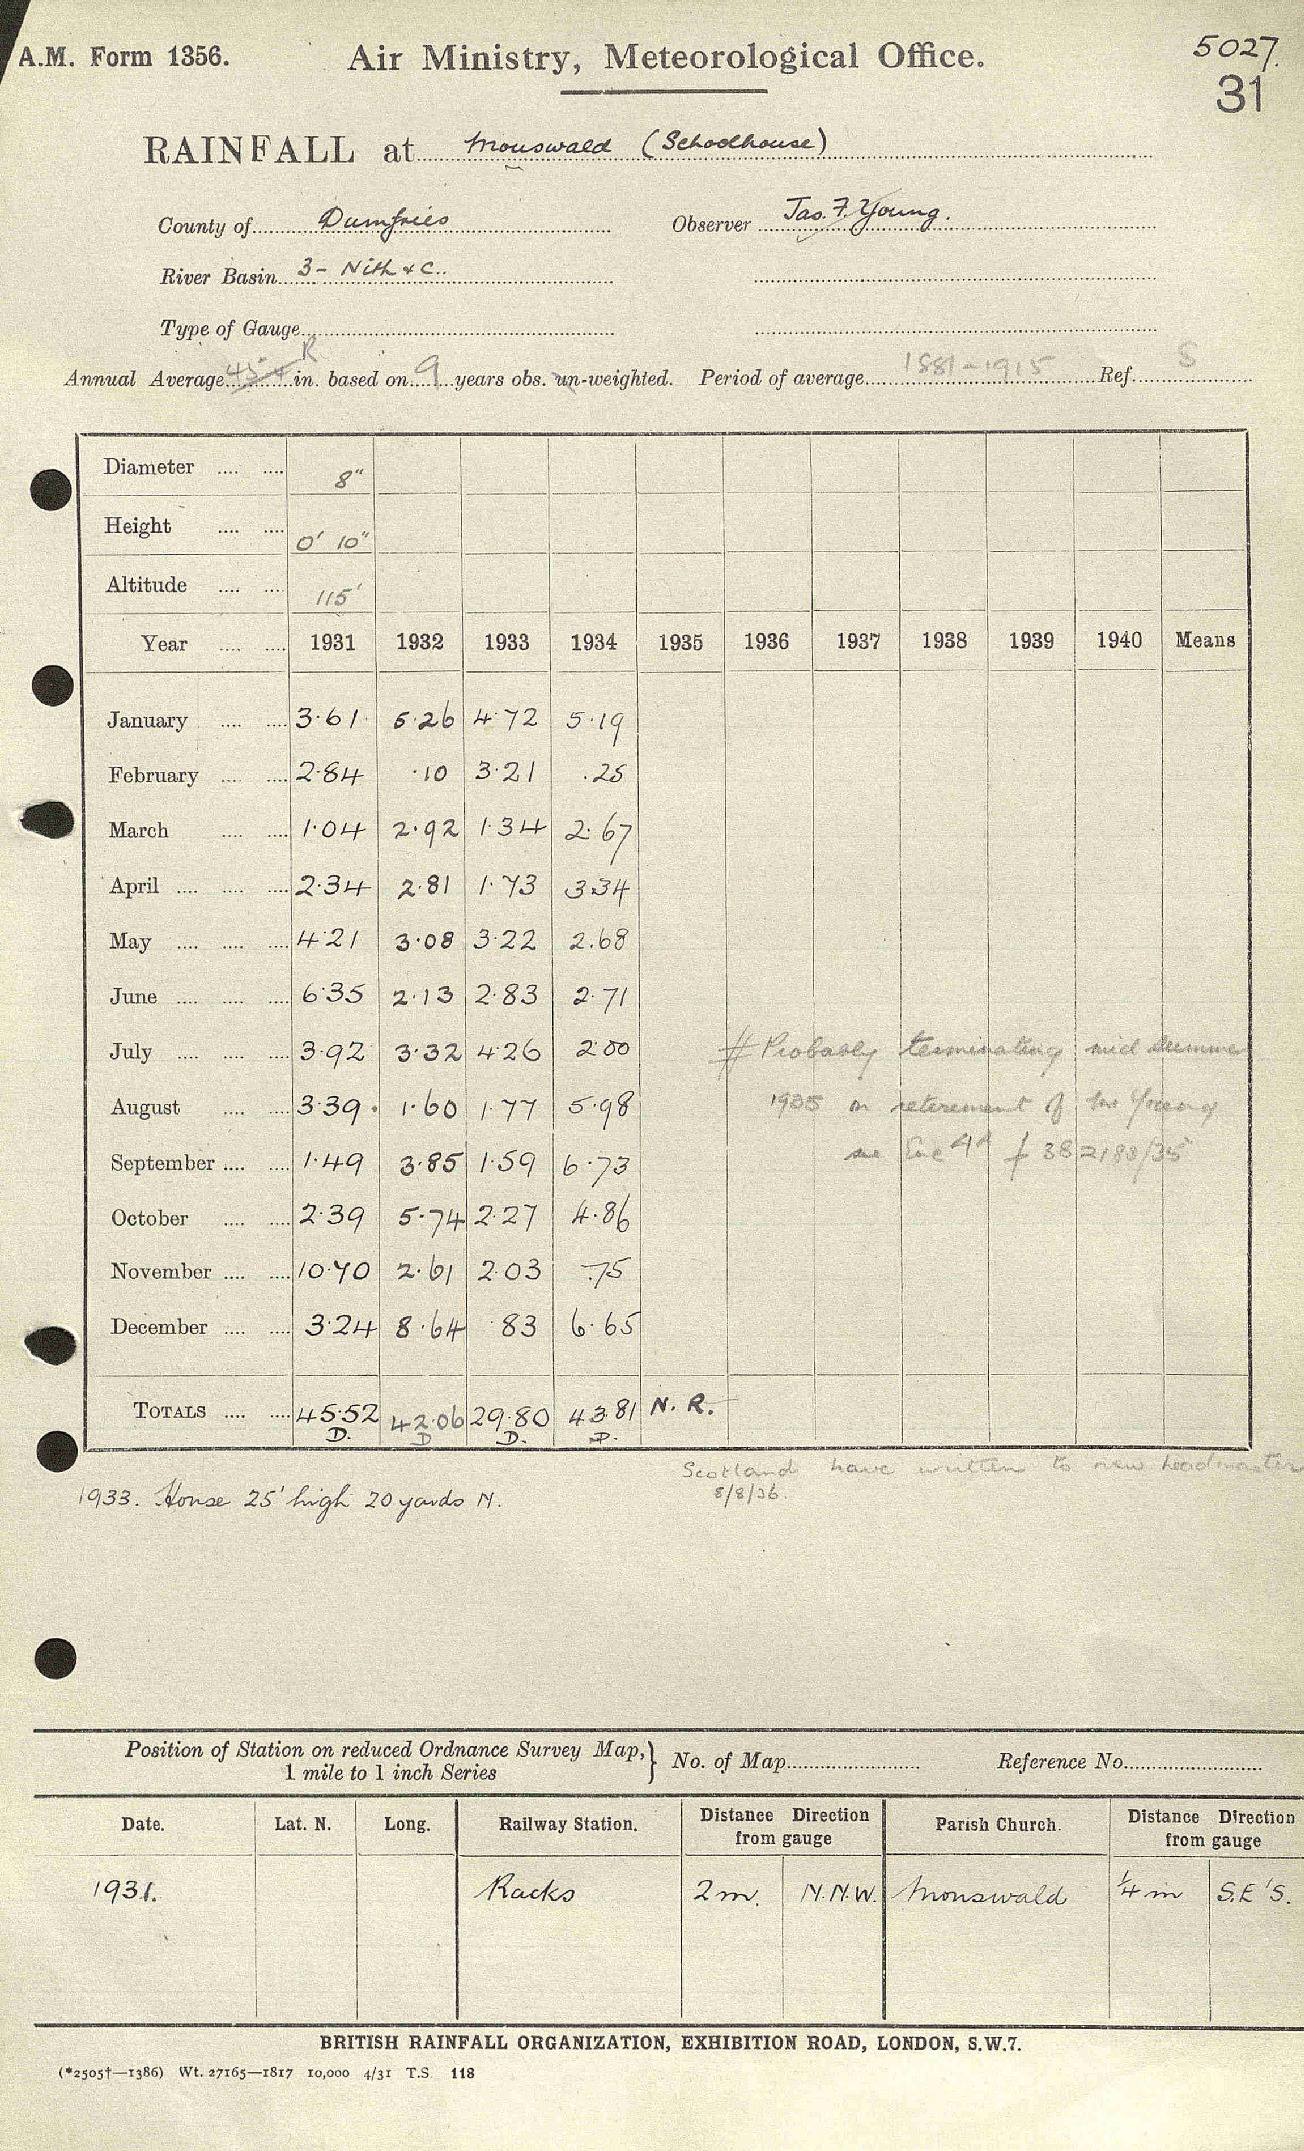 A.M. Form 1356.
Air Ministry, Meteorological Office.
5027.
31
RAINFALL at Mouswald (Schoolhouse)
County of Dumfries Observer Jas. F. Young.
River Basin 3 - Nith & C..
Type of Gauge
R
Annual Average in. based on 9 years obs. un-weighted. Period of average 1881-1915 Ref. S
Diameter .... .... 8"
Height .... .... 0' 10"
Altitude .... .... 115'
Year .... .... 1931 1932 1933 1934 1935 1936 1937 1938 1939 1940 Means
January .... .... 3.61 5.26 4.72 5.19
February .... .... 2.84 .10 3.21 .25
March .... .... 1.04 2.92 1.34 2.67
April .... .... .... 2.34 2.81 1.73 3.34
May .... .... .... 4.21 3.08 3.22 2.68
June .... .... .... 6.35 2.13 2.83 2.71
July .... .... .... 3.92 3.32 4.26 2.00
# Probably terminating mid summer
August .... .... 3.39 1.60 1.77 5.98
1935 on retirement of Mr Young
September .... .... 1.49 3.85 1.59 6.73
see
October .... .... 2.39 5.74 2.27 4.86
November .... .... 10.70 2.61 2.03 .75
December .... .... 3.24 8.64 .83 6.65
TOTALS .... .... 45.52 42.06 29.80 43.81 N. R.
D. D D. D.
Scotland have written to new headmaster
8/8/36.
1933. House 25' high 20 yards N.
Position of Station on reduced Ordnance Survey Map, 1 mile to 1 inch Series } No. of Map Reference No.
Date. Lat. N. Long. Railway Station. Distance Direction from gauge Parish Church. Distance Direction from gauge
1931. Racks 2 m. N.N.W. Mouswald 1/4 m S.E'S.
BRITISH RAINFALL ORGANIZATION, EXHIBITION ROAD, LONDON, S.W.7.
(*2505†—1386) Wt. 27165—1817 10,000 4/31 T.S. 118